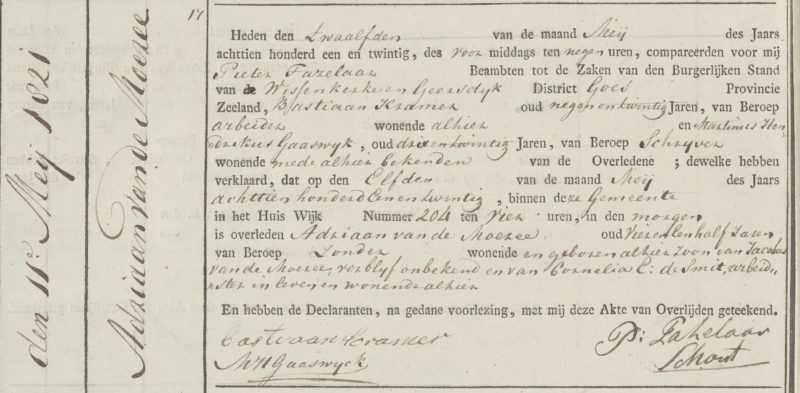 17
den 11e Meij 1821
Adriaan van de Moezee
Heden den Twaalfden van de maand Meij des Jaars
achttien honderd een en twintig, des voor middags ten negen uren, compareerden voor mij
Pieter Fazelaar Beambten tot de Zaken van den Burgerlijken Stand
van de Wissenkerke en Geersdyk District Goes Provincie
Zeeland, Bastiaan Kramer oud negen en twintig Jaren, van Beroep
arbeider wonende alhier en Martinus Hen
drikus Gaaswyk, oud drie en twintig Jaren, van Beroep Schryver
wonende mede alhier bekenden van de Overledene; dewelke hebben
verklaard, dat op den Elfden van de maand Meij des Jaars
achttien honderd een en twintig, binnen deze Gemeente
in het Huis Wijk Nummer 204 ten Vier uren, in den morgen
is overleden Adriaan van de Moezee oud Vier en een half Jaren
van Beroep Zonder wonende en geboren alhier Zoon van Jacobus
van de Moezee, verblyf onbekend en van Cornelia E: de Smit, arbeid„
ster in leven en wonende alhier
En hebben de Declaranten, na gedane voorlezing, met mij deze Akte van Overlijden geteekend.
Bastiaan Kramer P: Fazelaar
MH Gaaswyck Schout